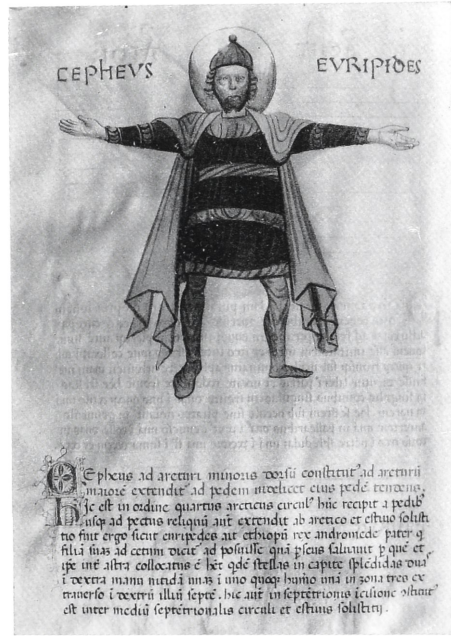 CEPHEVS EVRIPIDES
Cepheus ad arcturi minoris dorsũ constitut' ad arcturũ
maiorẽ extendit' ad pedem
Hic est in ordine quartus arcticus circul' hũc recipit a pedib'
usq; ad pectus reliquũ aut̃ extendit ab arctico et estiuo solisti
tio fuit ergo sicut euripedes ait ethiopũ rex andromede pater q̃
filiã suaȝ ad cetum dicit' ad posuisse quã ꝑseus saluauit
ipẽ int̃ astra collocatus ẽ h̃et qdẽ stellas in capite splẽdidas duas
i dextra manu nitidã unaȝ i uno quoq; hum̃o unã in zona tres ex
trauerso i dextrũ illiũ septẽ. hic aut̃ in septẽtrionis
est inter mediũ septẽtrionalis circuli et estiuus solistitij.